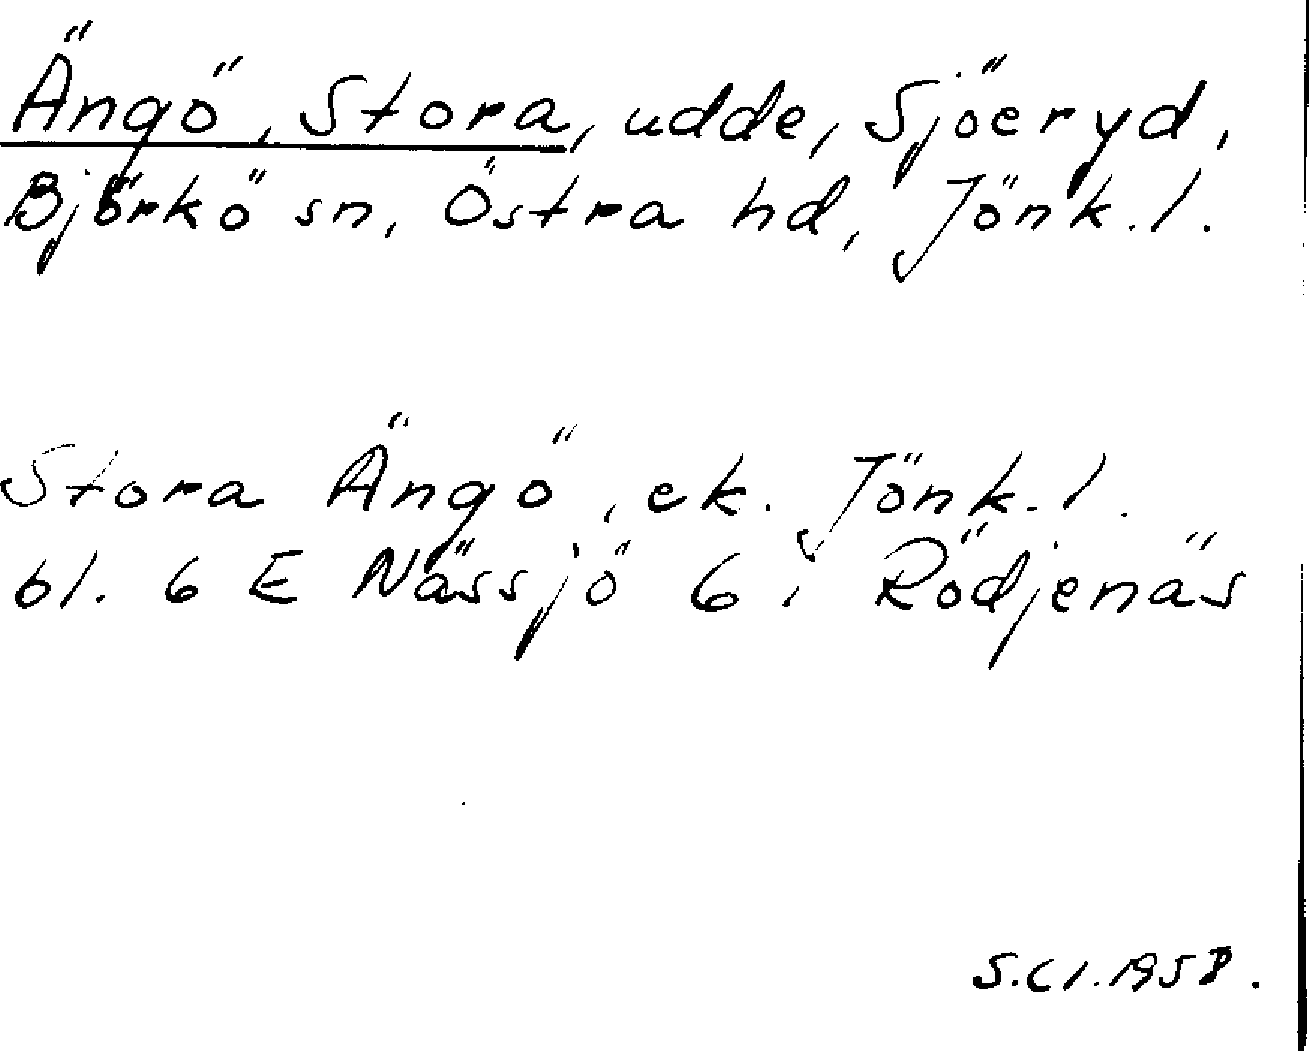 Ängö, Stora, udde, Sjöeryd,
Björkö sn, Östra hd, Jönk.l.
Stora Ängö, ek. Jönk.l.
bl. 6 E Nässjö 6 i Rödjenäs
S.Cl.1958.